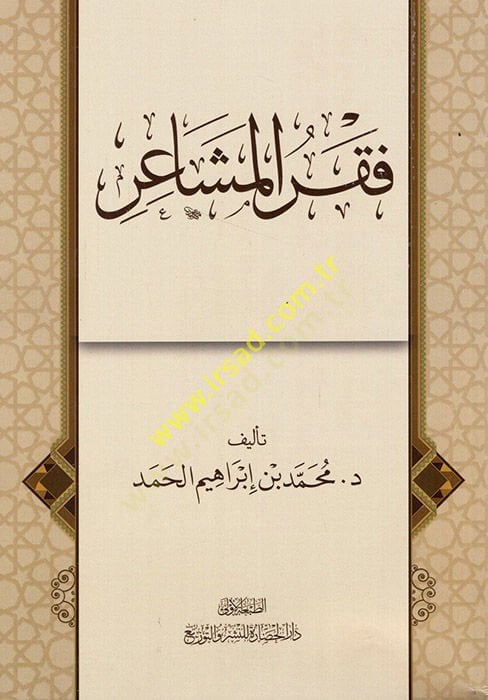 فَقْرُ المَشَاعِرِ
www.irsad.com.tr
www.irsad.com.tr
تأليف
د. مُحَمَّد بْن إِبْرَاهِيم الحَمَد
الطبعة الأولى
دار الحضارة للنشر والتوزيع